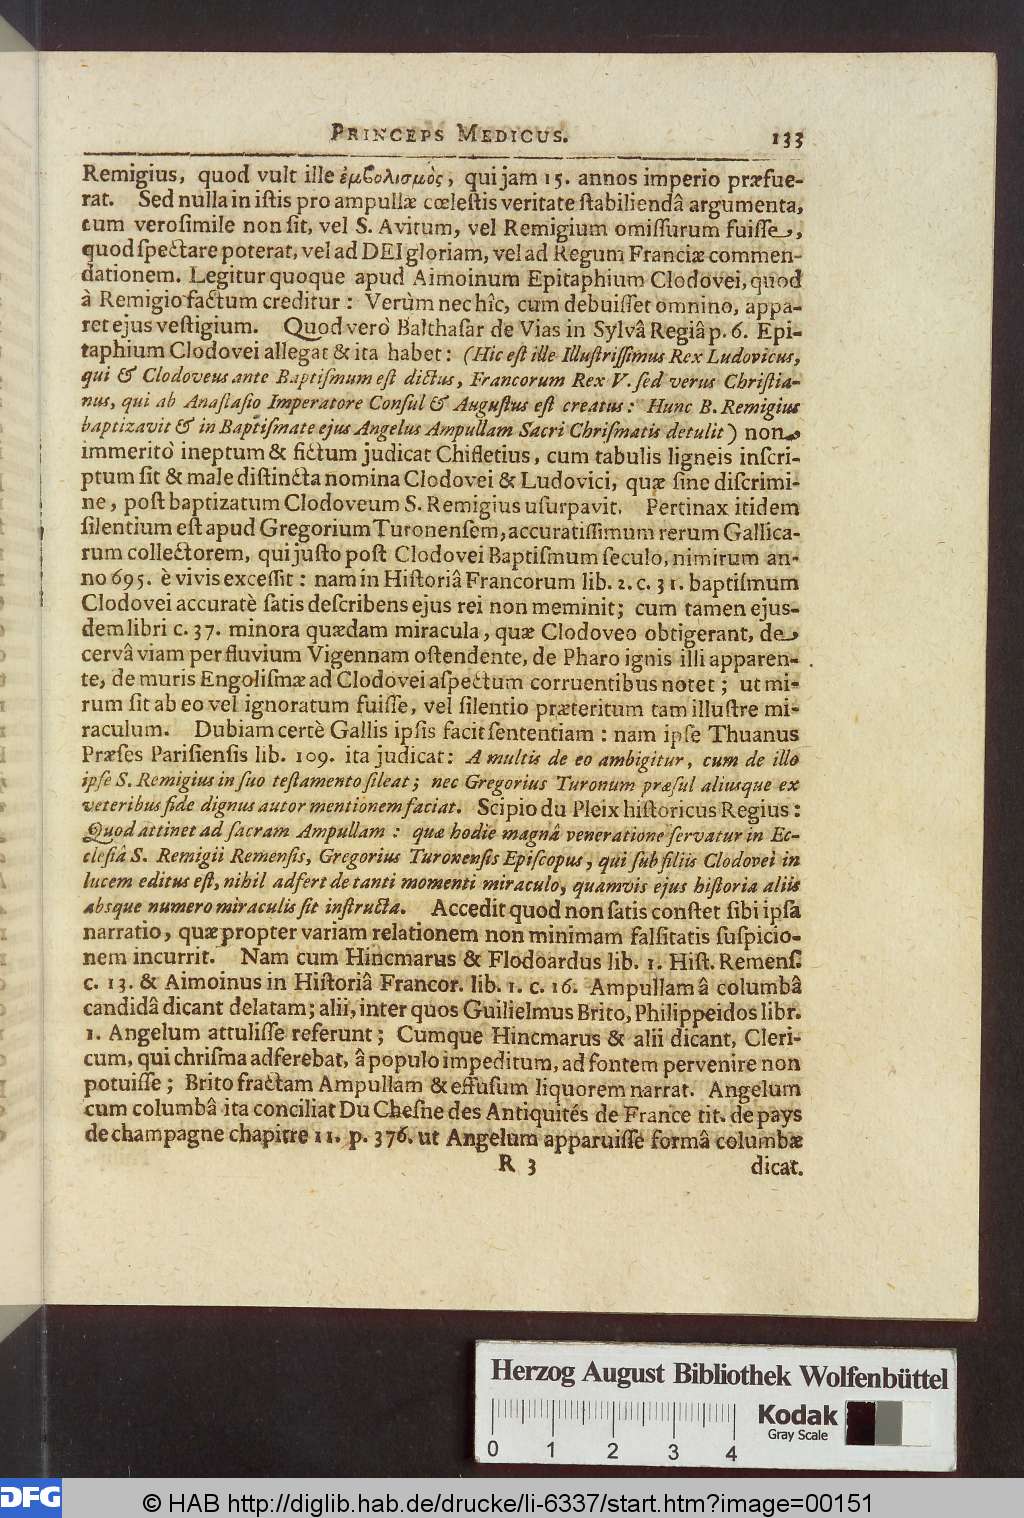 PRINCEPS MEDICUS. 133
Remigius, quod vult ille ἐμβολισμὸς, qui jam 15. annos imperio præfue-
rat. Sed nulla in iſtis pro ampullæ cœleſtis veritate ſtabiliendâ argumenta,
cum veroſimile non ſit, vel S. Avitum, vel Remigium omiſſurum fuiſſe,
quod ſpectare poterat, vel ad DEI gloriam, vel ad Regum Franciæ commen-
dationem. Legitur quoque apud Aimoinum Epitaphium Clodovei, quod
à Remigio factum creditur: Verùm nec hîc, cum debuiſſet omnino, appa-
ret ejus veſtigium. Quod verò Balthaſar de Vias in Sylvâ Regiâ p. 6. Epi-
taphium Clodovei allegat & ita habet: (Hic eſt ille Illuſtriſſimus Rex Ludovicus,
qui & Clodoveus ante Baptiſmum eſt dictus, Francorum Rex V. ſed verus Chriſtia-
nus, qui ab Anaſtaſio Imperatore Conſul & Auguſtus eſt creatus: Hunc B. Remigius
baptizavit & in Baptiſmate ejus Angelus Ampullam Sacri Chriſmatis detulit) non
immeritò ineptum & fictum judicat Chifletius, cum tabulis ligneis inſcri-
ptum ſit & male diſtincta nomina Clodovei & Ludovici, quæ ſine diſcrimi-
ne, poſt baptizatum Clodoveum S. Remigius uſurpavit. Pertinax itidem
ſilentium eſt apud Gregorium Turonenſem, accuratiſſimum rerum Gallica-
rum collectorem, qui juſto poſt Clodovei Baptiſmum ſeculo, nimirum an-
no 695. è vivis exceſſit: nam in Hiſtoriâ Francorum lib. 2. c. 31. baptiſmum
Clodovei accuratè ſatis deſcribens ejus rei non meminit; cum tamen ejus-
dem libri c. 37. minora quædam miracula, quæ Clodoveo obtigerant, de
cervâ viam per fluvium Vigennam oſtendente, de Pharo ignis illi apparen-
te, de muris Engoliſmæ ad Clodovei aſpectum corruentibus notet; ut mi-
rum ſit ab eo vel ignoratum fuiſſe, vel ſilentio præteritum tam illuſtre mi-
raculum. Dubiam certè Gallis ipſis facit ſententiam: nam ipſe Thuanus
Præſes Pariſienſis lib. 109. ita judicat: A multis de eo ambigitur, cum de illo
ipſe S. Remigius in ſuo teſtamento ſileat; nec Gregorius Turonum præſul aliusque ex
veteribus fide dignus autor mentionem faciat. Scipio du Pleix hiſtoricus Regius:
Quod attinet ad ſacram Ampullam: quæ hodie magnâ veneratione ſervatur in Ec-
cleſiâ S. Remigii Remenſis, Gregorius Turonenſis Epiſcopus, qui ſub filiis Clodovei in
lucem editus eſt, nihil adfert de tanti momenti miraculo, quamvis ejus hiſtoria aliis
absque numero miraculis ſit inſtructa. Accedit quod non ſatis conſtet ſibi ipſa
narratio, quæ propter variam relationem non minimam falſitatis ſuſpicio-
nem incurrit. Nam cum Hincmarus & Flodoardus lib. 1. Hiſt. Remenſ.
c. 13. & Aimoinus in Hiſtoriâ Francor. lib. 1. c. 16. Ampullam â columbâ
candidâ dicant delatam; alii, inter quos Guilielmus Brito, Philippeidos libr.
1. Angelum attuliſſe referunt; Cumque Hincmarus & alii dicant, Cleri-
cum, qui chriſma adferebat, â populo impeditum, ad fontem pervenire non
potuiſſe; Brito fractam Ampullam & effuſum liquorem narrat. Angelum
cum columbâ ita conciliat Du Cheſne des Antiquités de France tit. de pays
de champagne chapitre 11. p. 376. ut Angelum apparuiſſe formâ columbæ
R 3 dicat.
Herzog August Bibliothek Wolfenbüttel
Kodak
Gray Scale
0 1 2 3 4
DFG
© HAB http://diglib.hab.de/drucke/li-6337/start.htm?image=00151